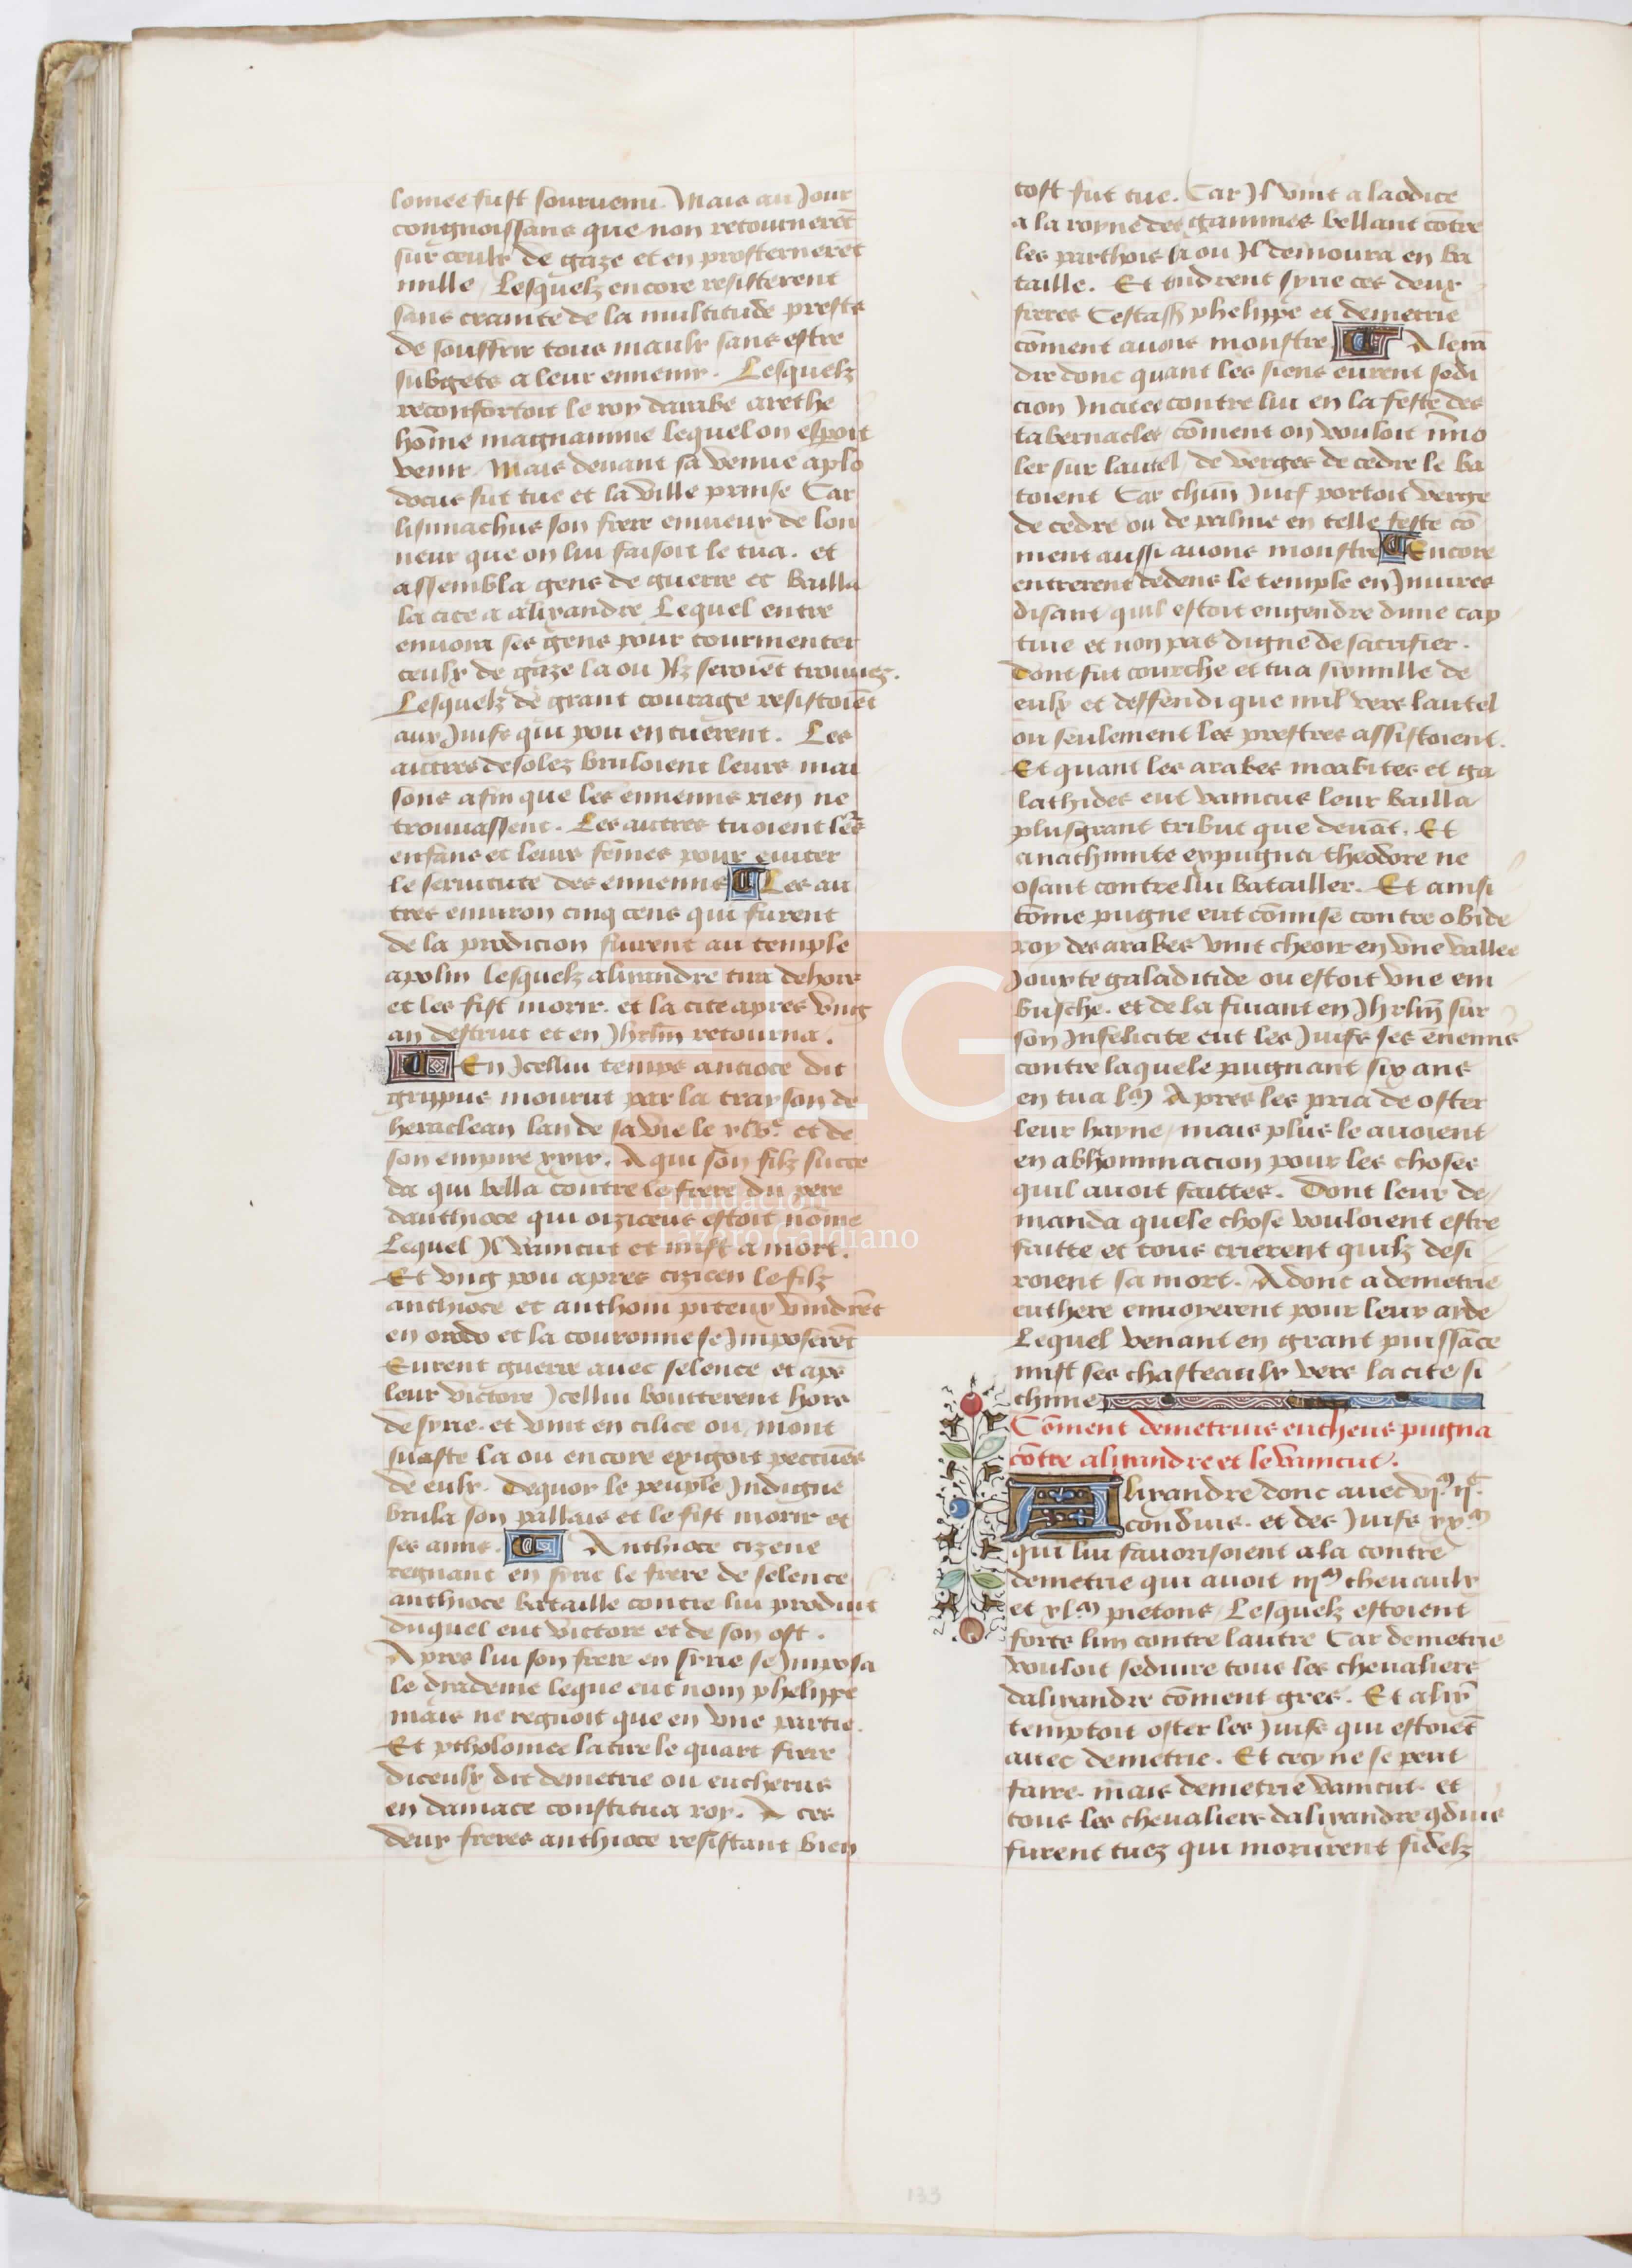 lomee fust souruenu. Mais au Jour
congnoissans que non retournerēt
sur ceulx de gaze et en prosternerēt
mille / Lesquelz encore resisterent
sans crainte de la multitude prestz
de souffrir tous maulx sans estre
subgetz a leur ennemy. Lesquelz
reconfortoit le roy darabe arethe
hōme magnanime lequel on espoit
venir. Mais deuant sa venue aplo
docus fut tue et la ville prinse Car
lisimachus son frere enuieux de lon
neur que on lui faisoit le tua. et
assembla gens de guerre et bailla
la cite a alixandre Lequel entre
enuoia ses gens pour tourmenter
ceulx de gaze la ou Jlz seroiēt trouuez.
Lesquelz de grant courage resistoiēt
aux Juifs qui pou en tuerent. Les
autres desolez bruloient leurs mai
sons afin que les ennemis rien ne
trouuassent. Les autres tuoient lēs
enfans et leurs fēmes pour euiter
le seruitute des ennemis Les au
tres enuiron cinq cens qui furent
de la prodicion fuirent au temple
apolin lesquelz alixandre tira dehors
et les fist morir. et la cite apres vng
an destruit et en Jhrlm̄ retourna.
En Jcellui temps antioce dit
grippus mourut par la trayson de
heraclean lan de sa vie le xlv.e et de
son empire xxix. A qui son filz succe
da qui bella contre le frere du pere
danthioce qui ciziceus estoit nome
Lequel Jl vainout et mist a mort.
Et vng pou apres cizicen le filz
anthioce et anthoin piteux vindrēt
en orodo et la couronne se Jmposerēt
Eurent guerre auec selence et apͤs
leur victore Jcellui boutterent hors
de syrie. et vint en cilice ou mont
suaste la ou encore exigoit peccunēs
de eulx. Dequoy le peuple Jndigne
brula son pallais et le fist morir et
ses amis. Anthioce cizene
regnant en syrie le frere de selence
anthioce bataille contre lui produit
duquel eut victore et de son ost.
Apres lui son frere en syrie se Jmposa
le dyademe leque eut nom phelippe
mais ne regnoit que en vne partie.
Et ptholomee latire le quart frere
diceulx dit demetrie ou eucherus
en damace constitua roy. A ces
deux freres anthioce resistant bien
tost fut tue. Car Jl vint a laodice
a la royne des gammes bellant cōtre
les parthois la ou Jl demoura en ba
taille. Et tindrent syrie ces deux
freres Cestass phelippe et demetrie
cōment auons monstre Alexā
dre donc quant les siens eurent sedi
cion Jncitee contre lui en la feste des
tabernacles cōment on vouloit īmo
ler sur lautel / de verges de cedre le ba
toient Car chūn Juif portoit verge
de cedre ou de palme en telle feste cō
ment aussi auons monstre Encore
entrerent dedens le temple en Jniures
disant quil estoit engendre dune cap
tiue et non pas digne de sacrifier.
Dont fut courche et tua six mille de
eulx et deffendi que nul vers lautel
ou seulement les prestres assistoient.
Et quant les arabes moabites et ga
lathides eut vaincus leur bailla
plus grant tribut que deuāt. Et
anathmite expugna theodore ne
osant contre lui batailler. Et ainsi
cōme pugne eut cōmise contre obide
roy des arabes vint cheoir en vne vallee
Jouxte galaditide ou estoit vne em
busche. et de la fuiant en Jhrlm̄ sur
son Jnfelicite eut les Juifs ses ēnemis
contre laquele pugnant six ans
en tua l.m Apres les pria de oster
leur hayne / mais plus le auoient
en abhominacion pour les choses
quil auoit faittes. Dont leur de
manda quele chose vouloient estre
faitte et tous crierent quilz desi
roient sa mort. Adonc a demetrie
euthere enuoyerent pour leur ayde
Lequel venant en grant puissāce
mist ses chasteaulx vers la cite si
chime
Cōment demetrius eucheus pugna
cōtre alixandre et le vaincut.
Alixandre donc auec vj.m ij.c
conduis. et des Juifs xx.m
qui lui fauorisoient a la contre
demetrie qui auoit iij.m cheuaulx
et xl.m pietons / Lesquelz estoient
forts lun contre lautre Car demetrie
vouloit seduire tous les cheualiers
dalixandre cōment gres. Et alix̄
temptoit oster les Juifs qui estoiēt
auec demetrie. Et cecy ne se peut
faire. mais demetrie vaincut et
tous les cheualiers dalixandre ꝯduis
furent tuez qui morurent fidelz
133
FLG
Fundación
Lázaro Galdiano